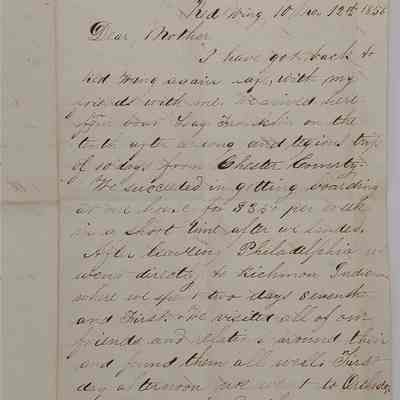 Red Wing 10 mo. 12th 1856
Dear Mother
I have got back to
Red Wing again safe, with my
friends with me. We arrived here
from boat Gray Franklin on the
tenth after a long and tegious trip
of 10 days from Chester County.
We succeeded in getting boarding
at one house for $3.50 per week
in a short time after we landed.
After leaving Philadelphia we
went directly to Richmon Indian
where we spent two days seventh
and First. We visited all of our
friends and relations around their
and found them all well. First
day afternoon we went to